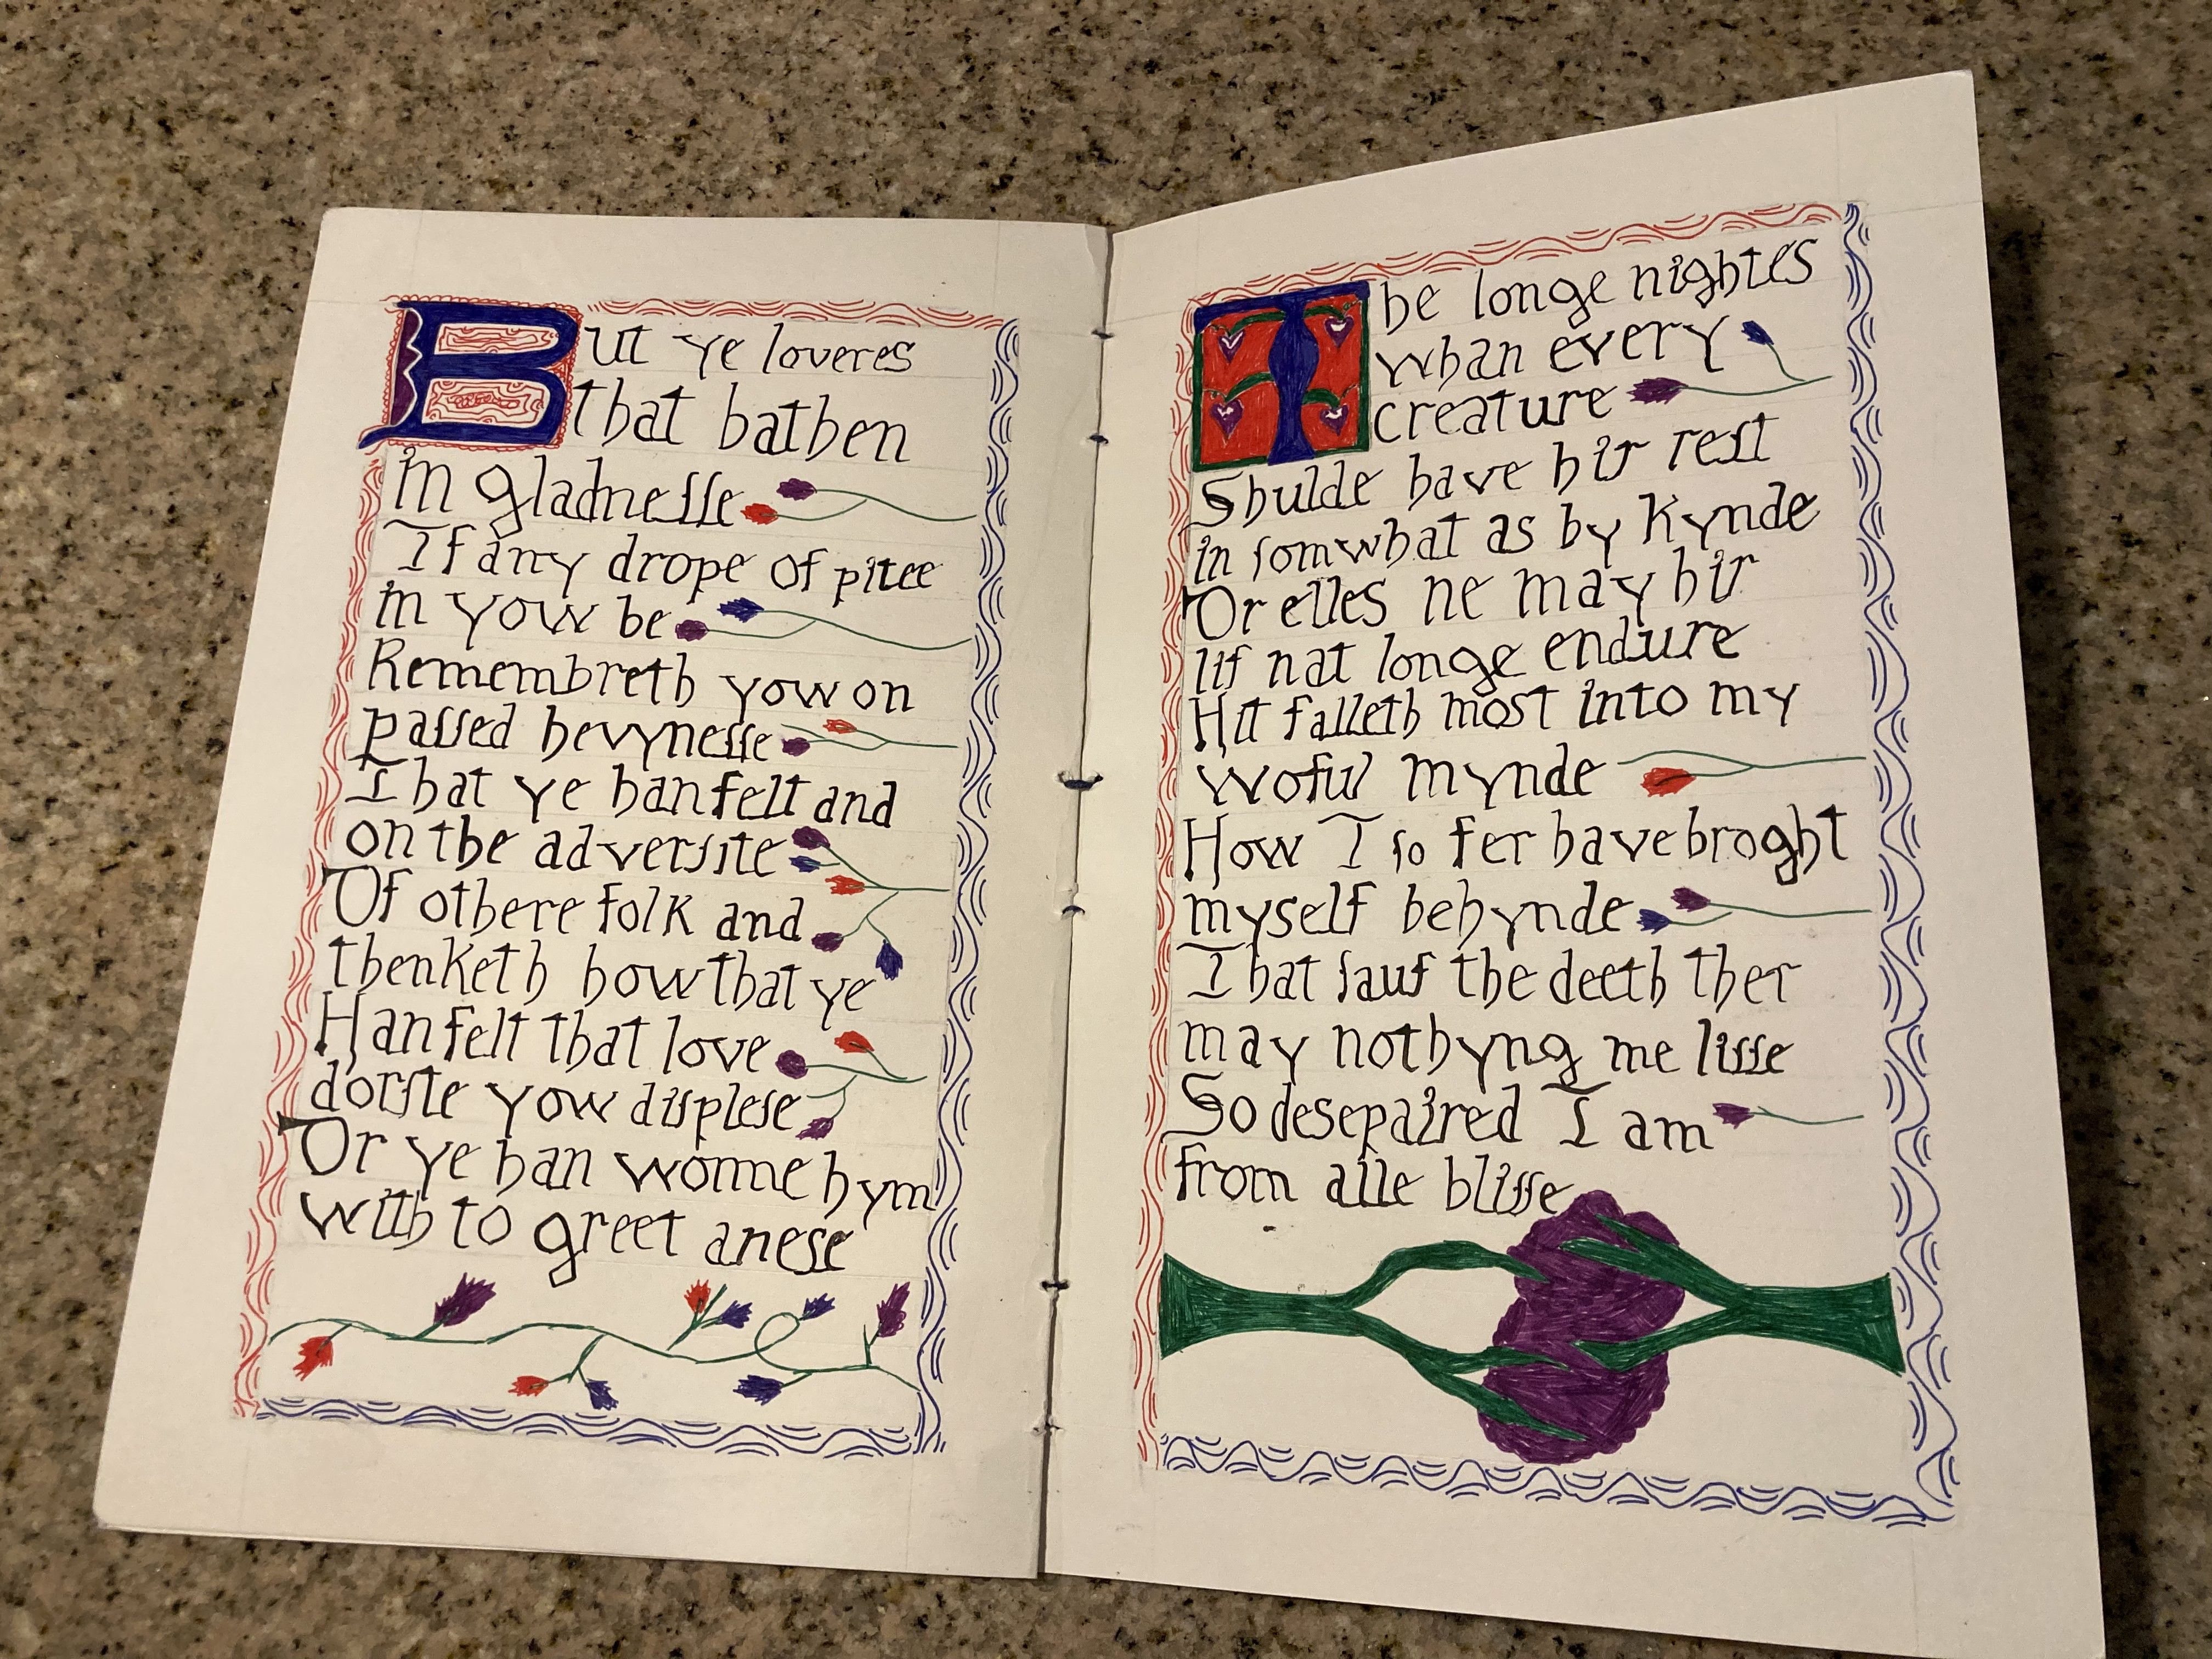 But ye loveres
that bathen
in gladnesse
If any drope of pitee
in yow be
Remembreth yow on
passed hevynesse
That ye han felt and
on the adversite
Of othere folk and
thenketh how that ye
Han felt that love
dorste yow displese
Or ye han wonne hym
with to greet anese
The longe nightes
whan every
creature
Shulde have hir rest
in somwhat as by kynde
Or elles ne may hir
lif nat longe endure
Hit falleth most into my
woful mynde
How I so fer have broght
myself behynde
That sauf the deeth ther
may nothyng me lisse
So desepaired I am
from alle blisse